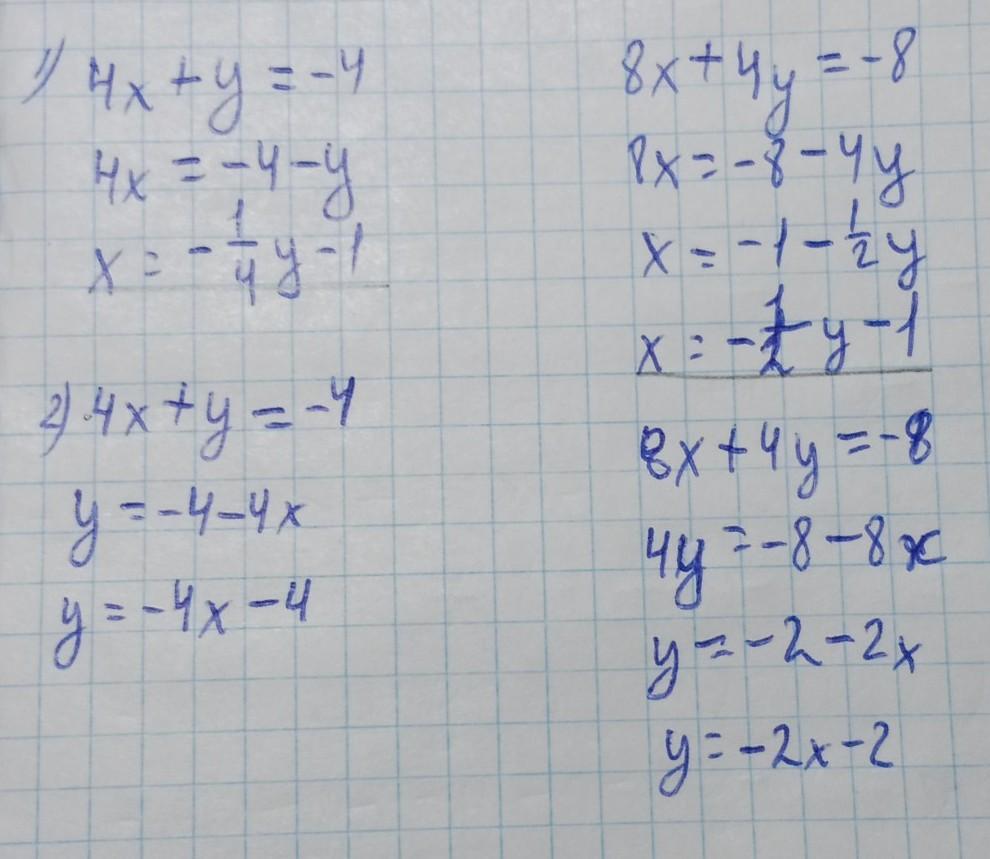 1) 4x + y = -4
4x = -4 - y
x = - 1/4 y - 1
8x + 4y = -8
8x = -8 - 4y
x = -1 - 1/2 y
x = - 1/2 y - 1
2) 4x + y = -4
y = -4 - 4x
y = -4x - 4
8x + 4y = -8
4y = -8 - 8x
y = -2 - 2x
y = -2x - 2